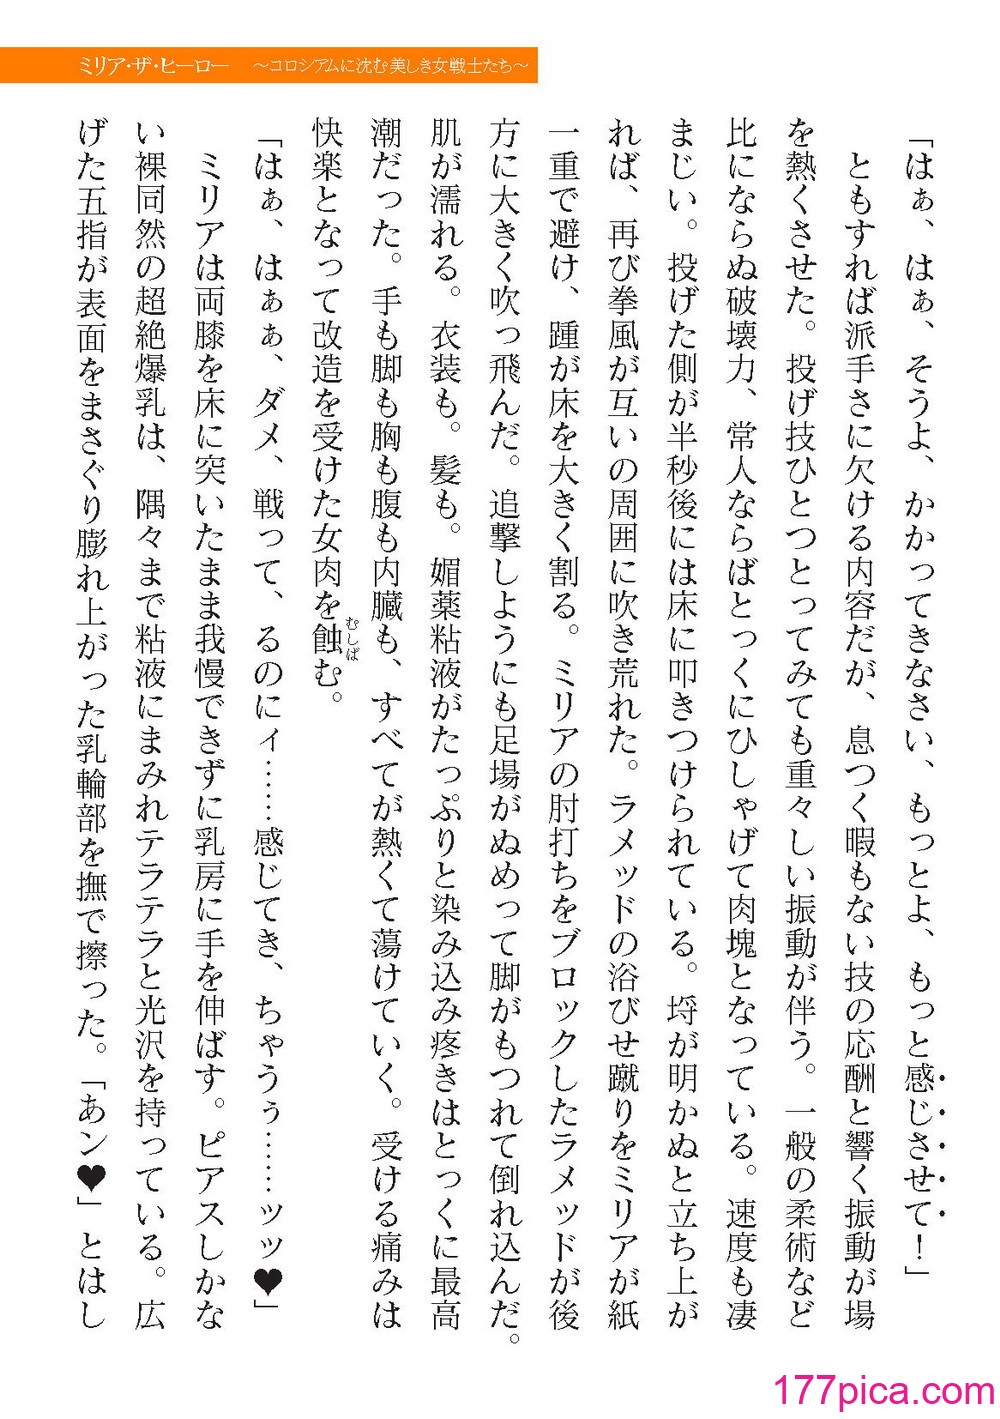 ミリア・ザ・ヒーロー　～コロシアムに沈む美しき女戦士たち～
「はぁ、はぁ、そうよ、かかってきなさい、もっとよ、もっと感じさせて！」
　ともすれば派手さに欠ける内容だが、息つく暇もない技の応酬と響く振動が場
を熱くさせた。投げ技ひとつとってみても重々しい振動が伴う。一般の柔術など
比にならぬ破壊力、常人ならばとっくにひしゃげて肉塊となっている。速度も凄
まじい。投げた側が半秒後には床に叩きつけられている。埒が明かぬと立ち上が
れば、再び拳風が互いの周囲に吹き荒れた。ラメッドの浴びせ蹴りをミリアが紙
一重で避け、踵が床を大きく割る。ミリアの肘打ちをブロックしたラメッドが後
方に大きく吹っ飛んだ。追撃しようにも足場がぬめって脚がもつれて倒れ込んだ。
肌が濡れる。衣装も。髪も。媚薬粘液がたっぷりと染み込み疼きはとっくに最高
潮だった。手も脚も胸も腹も内臓も、すべてが熱くて蕩けていく。受ける痛みは
快楽となって改造を受けた女肉を蝕む。
むしば
「はぁ、はぁぁ、ダメ、戦って、るのにィ……感じてき、ちゃうぅ……ッッ♥」
　ミリアは両膝を床に突いたまま我慢できずに乳房に手を伸ばす。ピアスしかな
い裸同然の超絶爆乳は、隅々まで粘液にまみれテラテラと光沢を持っている。広
げた五指が表面をまさぐり膨れ上がった乳輪部を撫で擦った。「あン♥」とはし
177pica.com